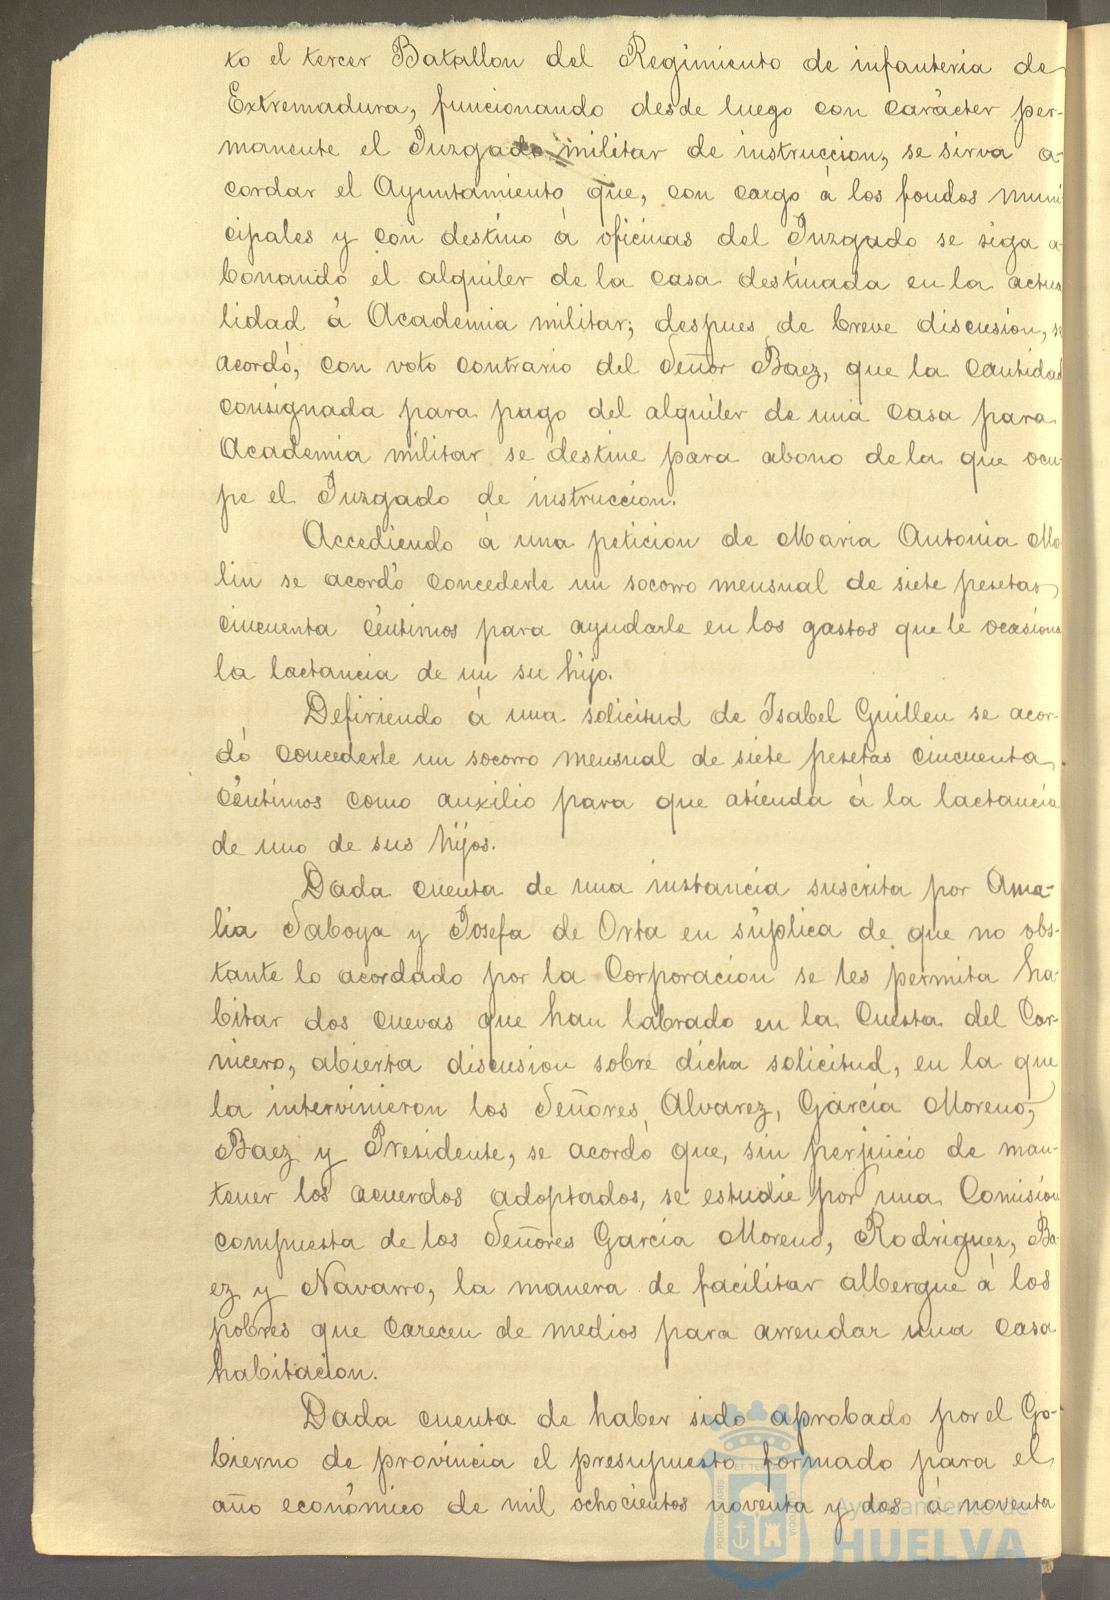 to el tercer Batallon del Regimiento de infanteria de
Extremadura, funcionando desde luego con carácter per-
manente el Juzgado militar de instruccion, se sirva a-
cordar el Ayuntamiento que, con cargo á los fondos muni-
cipales y con destino á oficinas del Juzgado se siga a-
bonando el alquiler de la casa destinada en la actua
lidad á Academia militar; despues de breve discusion, se
acordó, con voto contrario del Señor Baez, que la cantidad
consignada para pago del alquiler de una casa para
Academia militar se destine para abono de la que ocu-
pe el Juzgado de instruccion.
Accediendo á una peticion de Maria Antonia Mo-
lin se acordó concederle un socorro mensual de siete pesetas
cincuenta céntimos para ayudarle en los gastos que le ocasiona
la lactancia de un su hijo.
Defiriendo á una solicitud de Isabel Guillen se acor-
dó concederle un socorro mensual de siete pesetas cincuenta
céntimos como auxilio para que atienda á la lactancia
de uno de sus hijos.
Dada cuenta de una instancia suscrita por Ama-
lia Saboya y Josefa de Orta en súplica de que no obs-
tante lo acordado por la Corporacion se les permita ha-
bitar dos cuevas que han labrado en la Cuesta del Car-
nicero, abierta discusion sobre dicha solicitud, en la que
la intervinieron los Señores Alvarez, Garcia Moreno,
Baez y Presidente, se acordó que, sin perjuicio de man-
tener los acuerdos adoptados, se estudie por una Comision
compuesta de los Señores Garcia Moreno, Rodriguez, Ba-
ez y Navarro, la manera de facilitar albergue á los
pobres que carecen de medios para arrendar una casa
habitacion.
Dada cuenta de haber sido aprobado por el Go-
bierno de provincia el presupuesto formado para el
año económico de mil ochocientos noventa y dos á noventa
Ayuntamiento de
HUELVA